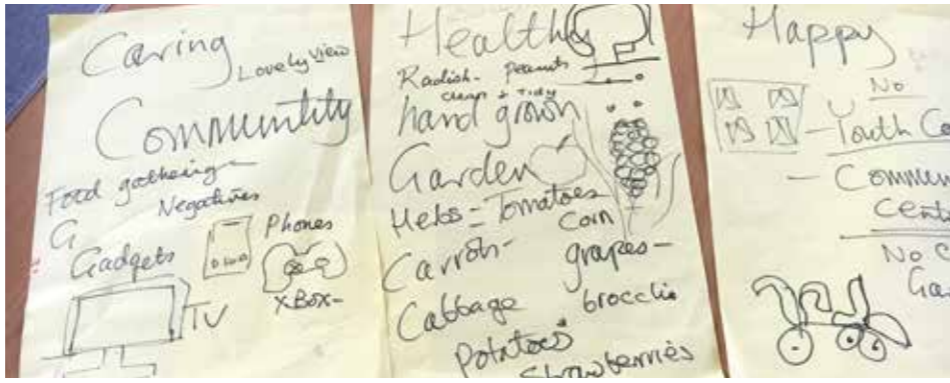 Caring
Lovely View
Community
Food gathering
Negatives
G
Gadgets
Phones
XBox-
TV
Healthy
Radish- Peanuts
cheap & Tidy
hand grown
Garden
Hebs - Tomatoes
Corn
Carrots -
grapes -
Cabbage
broccli
Potatoes
Strawberries
Happy
No
- Youth Ce
- Commun
Cent
No C
Ga